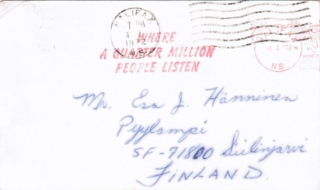 HALIFAX
PM
WHERE
A QUARTER MILLION
PEOPLE LISTEN
N.S.
Mr. Esa J. Hänninen
Pyylampi
SF-71800 Siilinjarvi
FINLAND.